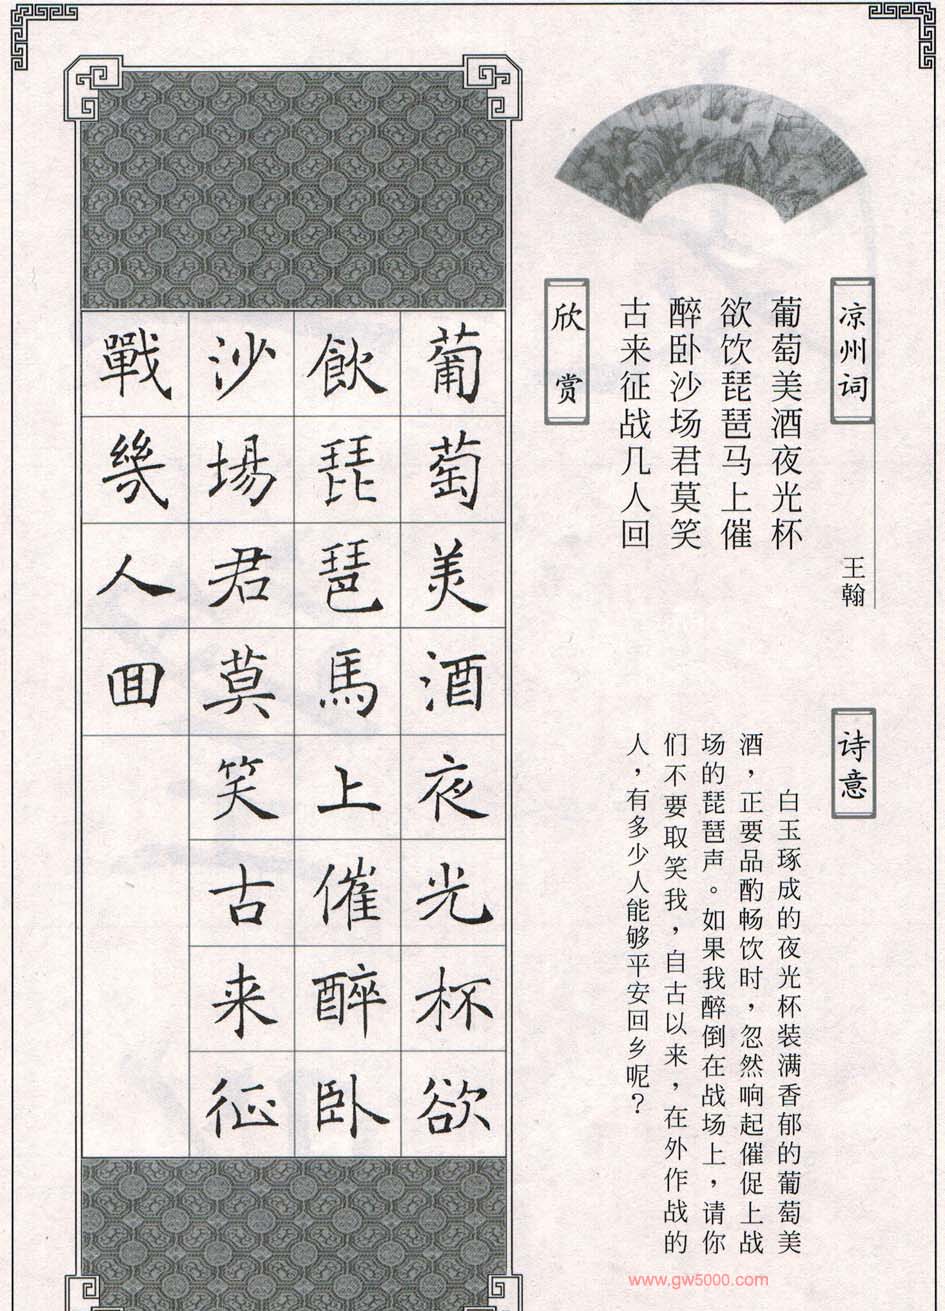 凉州词
王翰
葡萄美酒夜光杯
欲饮琵琶马上催
醉卧沙场君莫笑
古来征战几人回
诗意
白玉琢成的夜光杯装满香郁的葡萄美
酒，正要品酌畅饮时，忽然响起催促上战
场的琵琶声。如果我醉倒在战场上，请你
们不要取笑我，自古以来，在外作战的
人，有多少人能够平安回乡呢？
欣赏
葡萄美酒夜光杯欲
飲琵琶馬上催醉卧
沙場君莫笑古来征
戰幾人回
www.gw5000.com